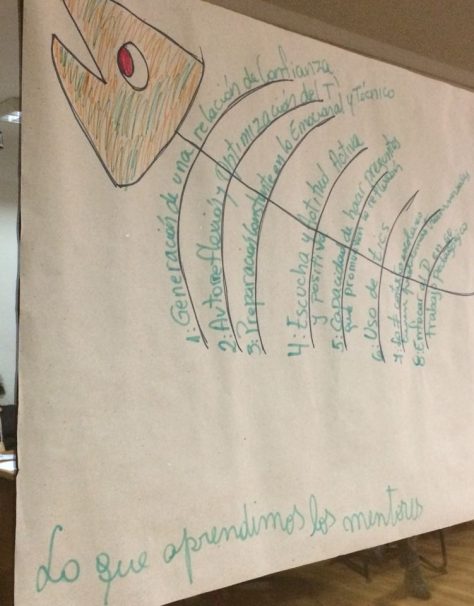 1: Generación de una relación de Confianza
2: Autoreflexión y optimización del T
3: Preparación Constante en lo Emocional y Técnico
4: Escucha y Actitud Activa
y positiva
5: Capacidad de hacer preguntas
que promuevan a reflexión
6: Uso de tics
7:
8: Enfocar el
trabajo pedagógico
Lo que aprendimos los mentores